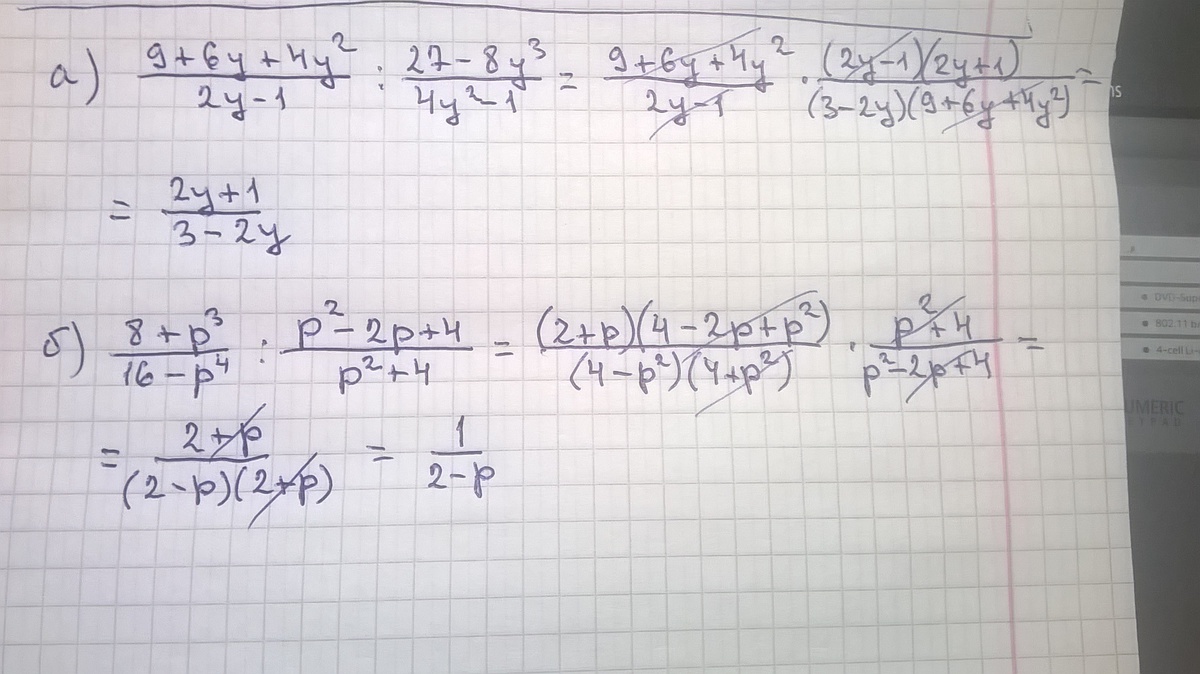 а) \frac{9+6y+4y^2}{2y-1} : \frac{27-8y^3}{4y^2-1} = \frac{9+6y+4y^2}{2y-1} \cdot \frac{(2y-1)(2y+1)}{(3-2y)(9+6y+4y^2)} =
= \frac{2y+1}{3-2y}
б) \frac{8+p^3}{16-p^4} : \frac{p^2-2p+4}{p^2+4} = \frac{(2+p)(4-2p+p^2)}{(4-p^2)(4+p^2)} \cdot \frac{p^2+4}{p^2-2p+4} =
= \frac{2+p}{(2-p)(2+p)} = \frac{1}{2-p}
802.11 b
4-cell Li-
UMERIC